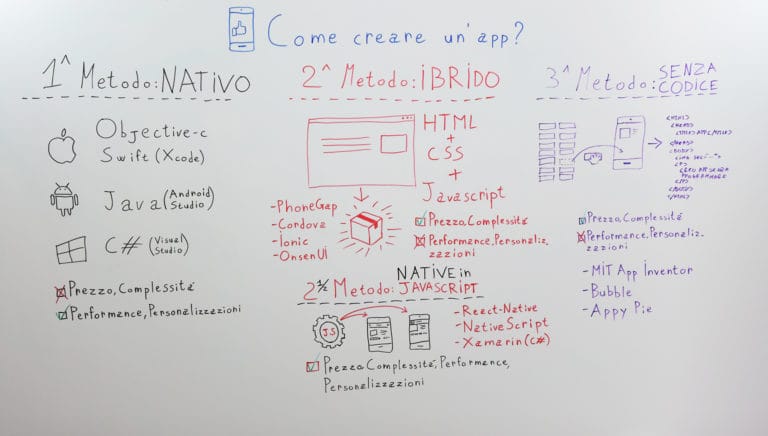 Come creare un'app?
1^ Metodo: NATIVO
Objective-c
Swift (Xcode)
Java (Android Studio)
C# (Visual Studio)
Prezzo, Complessitá
Performance, Personalizzazioni
2^ Metodo: İBRİDO
HTML
+
CSS
+
Javascript
- PhoneGap
- Cordova
- Ionic
- OnsenUi
Prezzo, Complessitá
Performance, Personaliz-
zazioni
NATIVE in
2½ Metodo: JAVASCRIPT
JS
- React-Native
- NativeScript
- Xamarin (C#)
Prezzo, Complessitá, Performance,
Personalizzazioni
3^ Metodo: SENZA
CODICE
<HTML>
<HEAD>
<TITLE> APP </TITLE>
</HEAD>
<BODY>
<P>
</P>
</BODY>
</HTML>
Prezzo, Complessitá
Performance, Personaliz-
zazioni
- MIT App Inventor
- Bubble
- Appy Pie